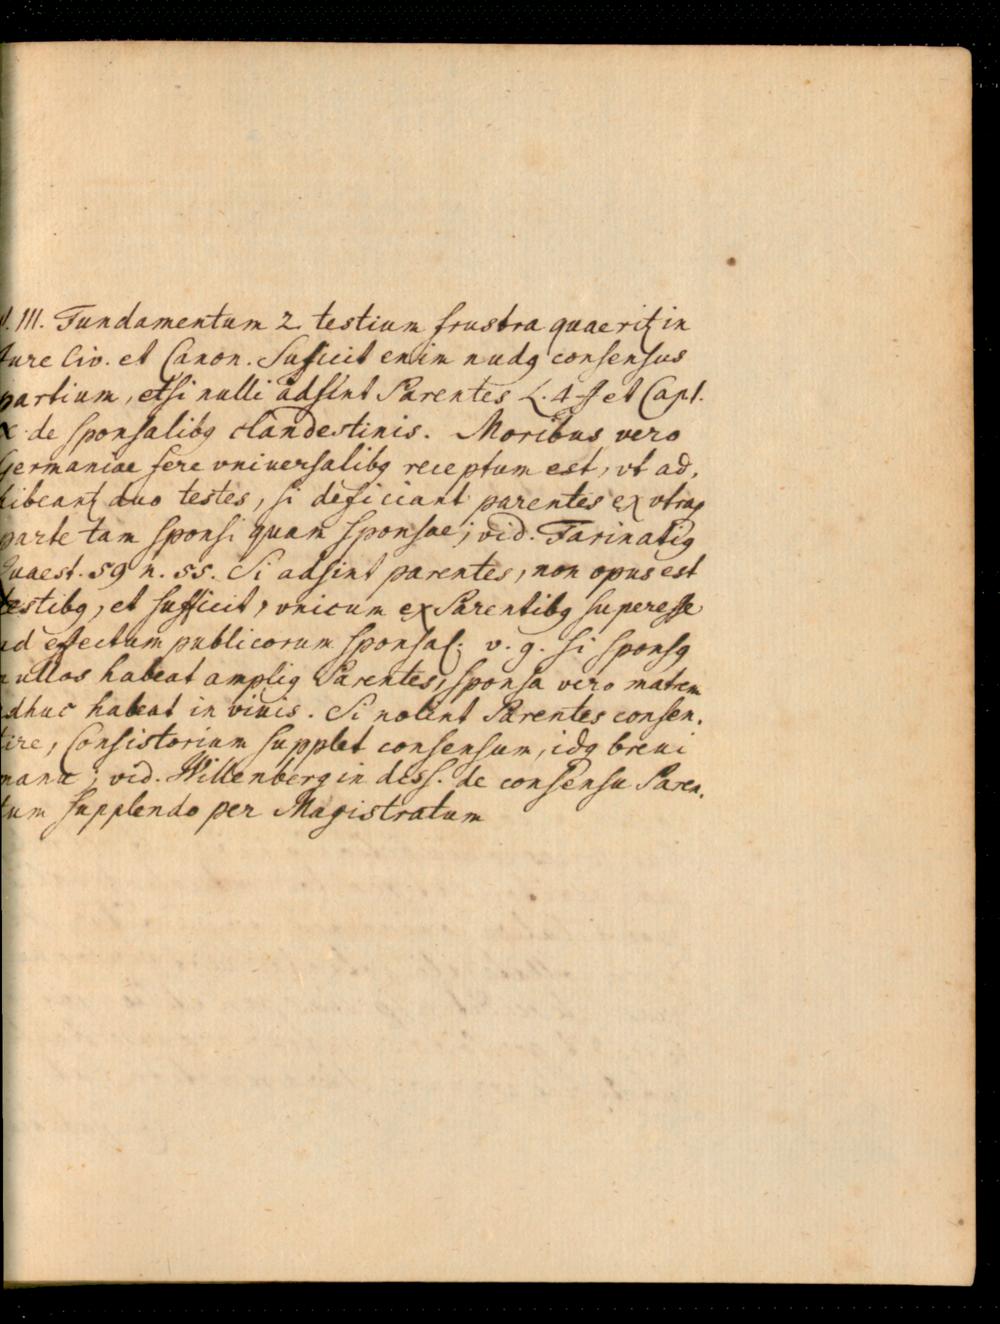 N. III. Fundamentum 2 testium frustra quaerit in
Jure Civ. et Canon. Suficit enim nudq consensus
partium, etsi nulli adsint Parentes L. 4 ff et Cap 1.
X de sponsalibq clandestinis. Moribus vero
Germaniae fere vniuersalibq receptum est, vt ad,
hibeant duo testes, si deficiant parentes ex vtraq
parte tam sponsi quam sponsae; vid. Farinatiq
Quaest. 59 n. 55. Si adsint parentes, non opus est
testibq, et sufficit, vnicum ex Parentibq superesse
ad efectum publicorum sponsal: v. g. si sponsq
nullos habeat ampliq Parentes, sponsa vero matrem
adhuc habeat in viuis. Si nolint Parentes consen,
tire, Consistorium supplet consensum, idq breui
manu; vid. Willenberg in diss. de consensu Paren,
tum supplendo per Magistratum